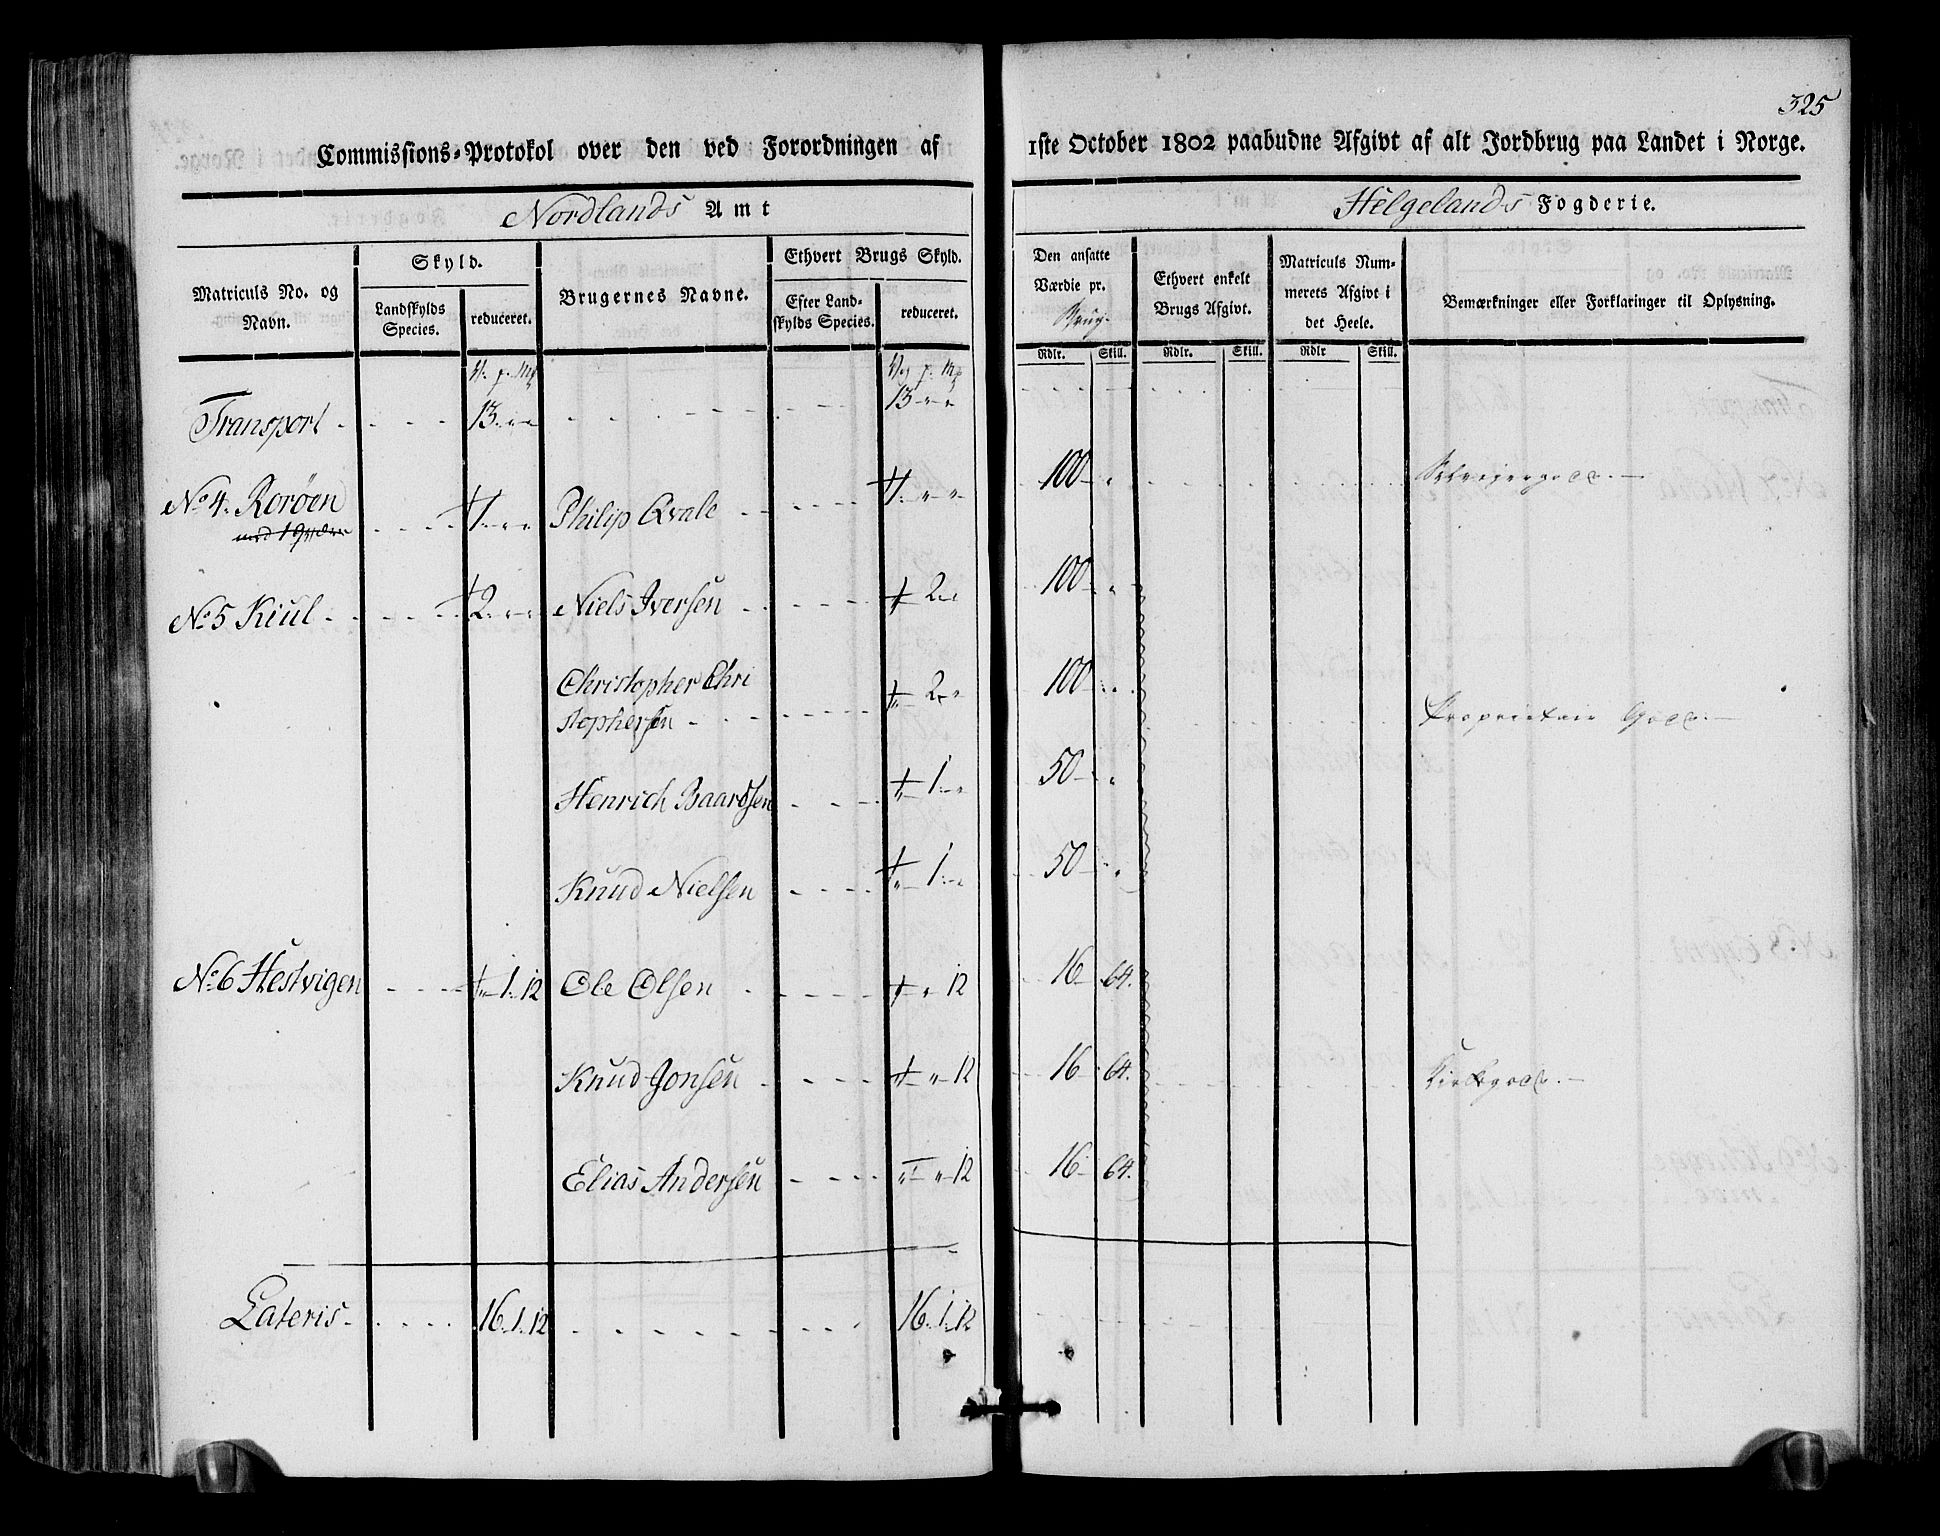 325
Commissions-Protokol over den ved Forordningen af 1ste October 1802 paabudne Afgivt af alt Jordbrug paa Landet i Norge.
Nordlands Amt Helgelands Fogderie.
Matriculs No. og Navn. Skyld. Landskylds Species. reduceret. Brugernes Navne. Ethvert Brugs Skyld. Efter Landskylds Species. reduceret. Den ansatte Værdie pr. Brug. Ethvert enkelt Brugs Afgivt. Matriculs Nummerets Afgivt i det Heele. Bemærkninger eller Forklaringer til Oplysning.
Rdlr. Skill. Rdlr. Skill. Rdlr Skill.
Transport 13 " " 13 " "
No 4. Rorøen 1 " " Philip Qvale 1 " " 100 " Selveiergods.
No 5 Kiul 2 " " Niels Iversen " 2 " 100 "
Christopher Chri
stophersen " 2 " 100 " Proprietair Gods.
Henrich Baardsen " 1 " 50 "
Knud Nielsen " 1 " 50 "
No 6 Hestvigen " 1. 12 Ole Olsen " " 12 16 64.
Knud Jonsen " " 12 16 64. Kirkegods.
Elias Andersen " " 12 16 64.
Lateris 16. 1. 12 16. 1. 12